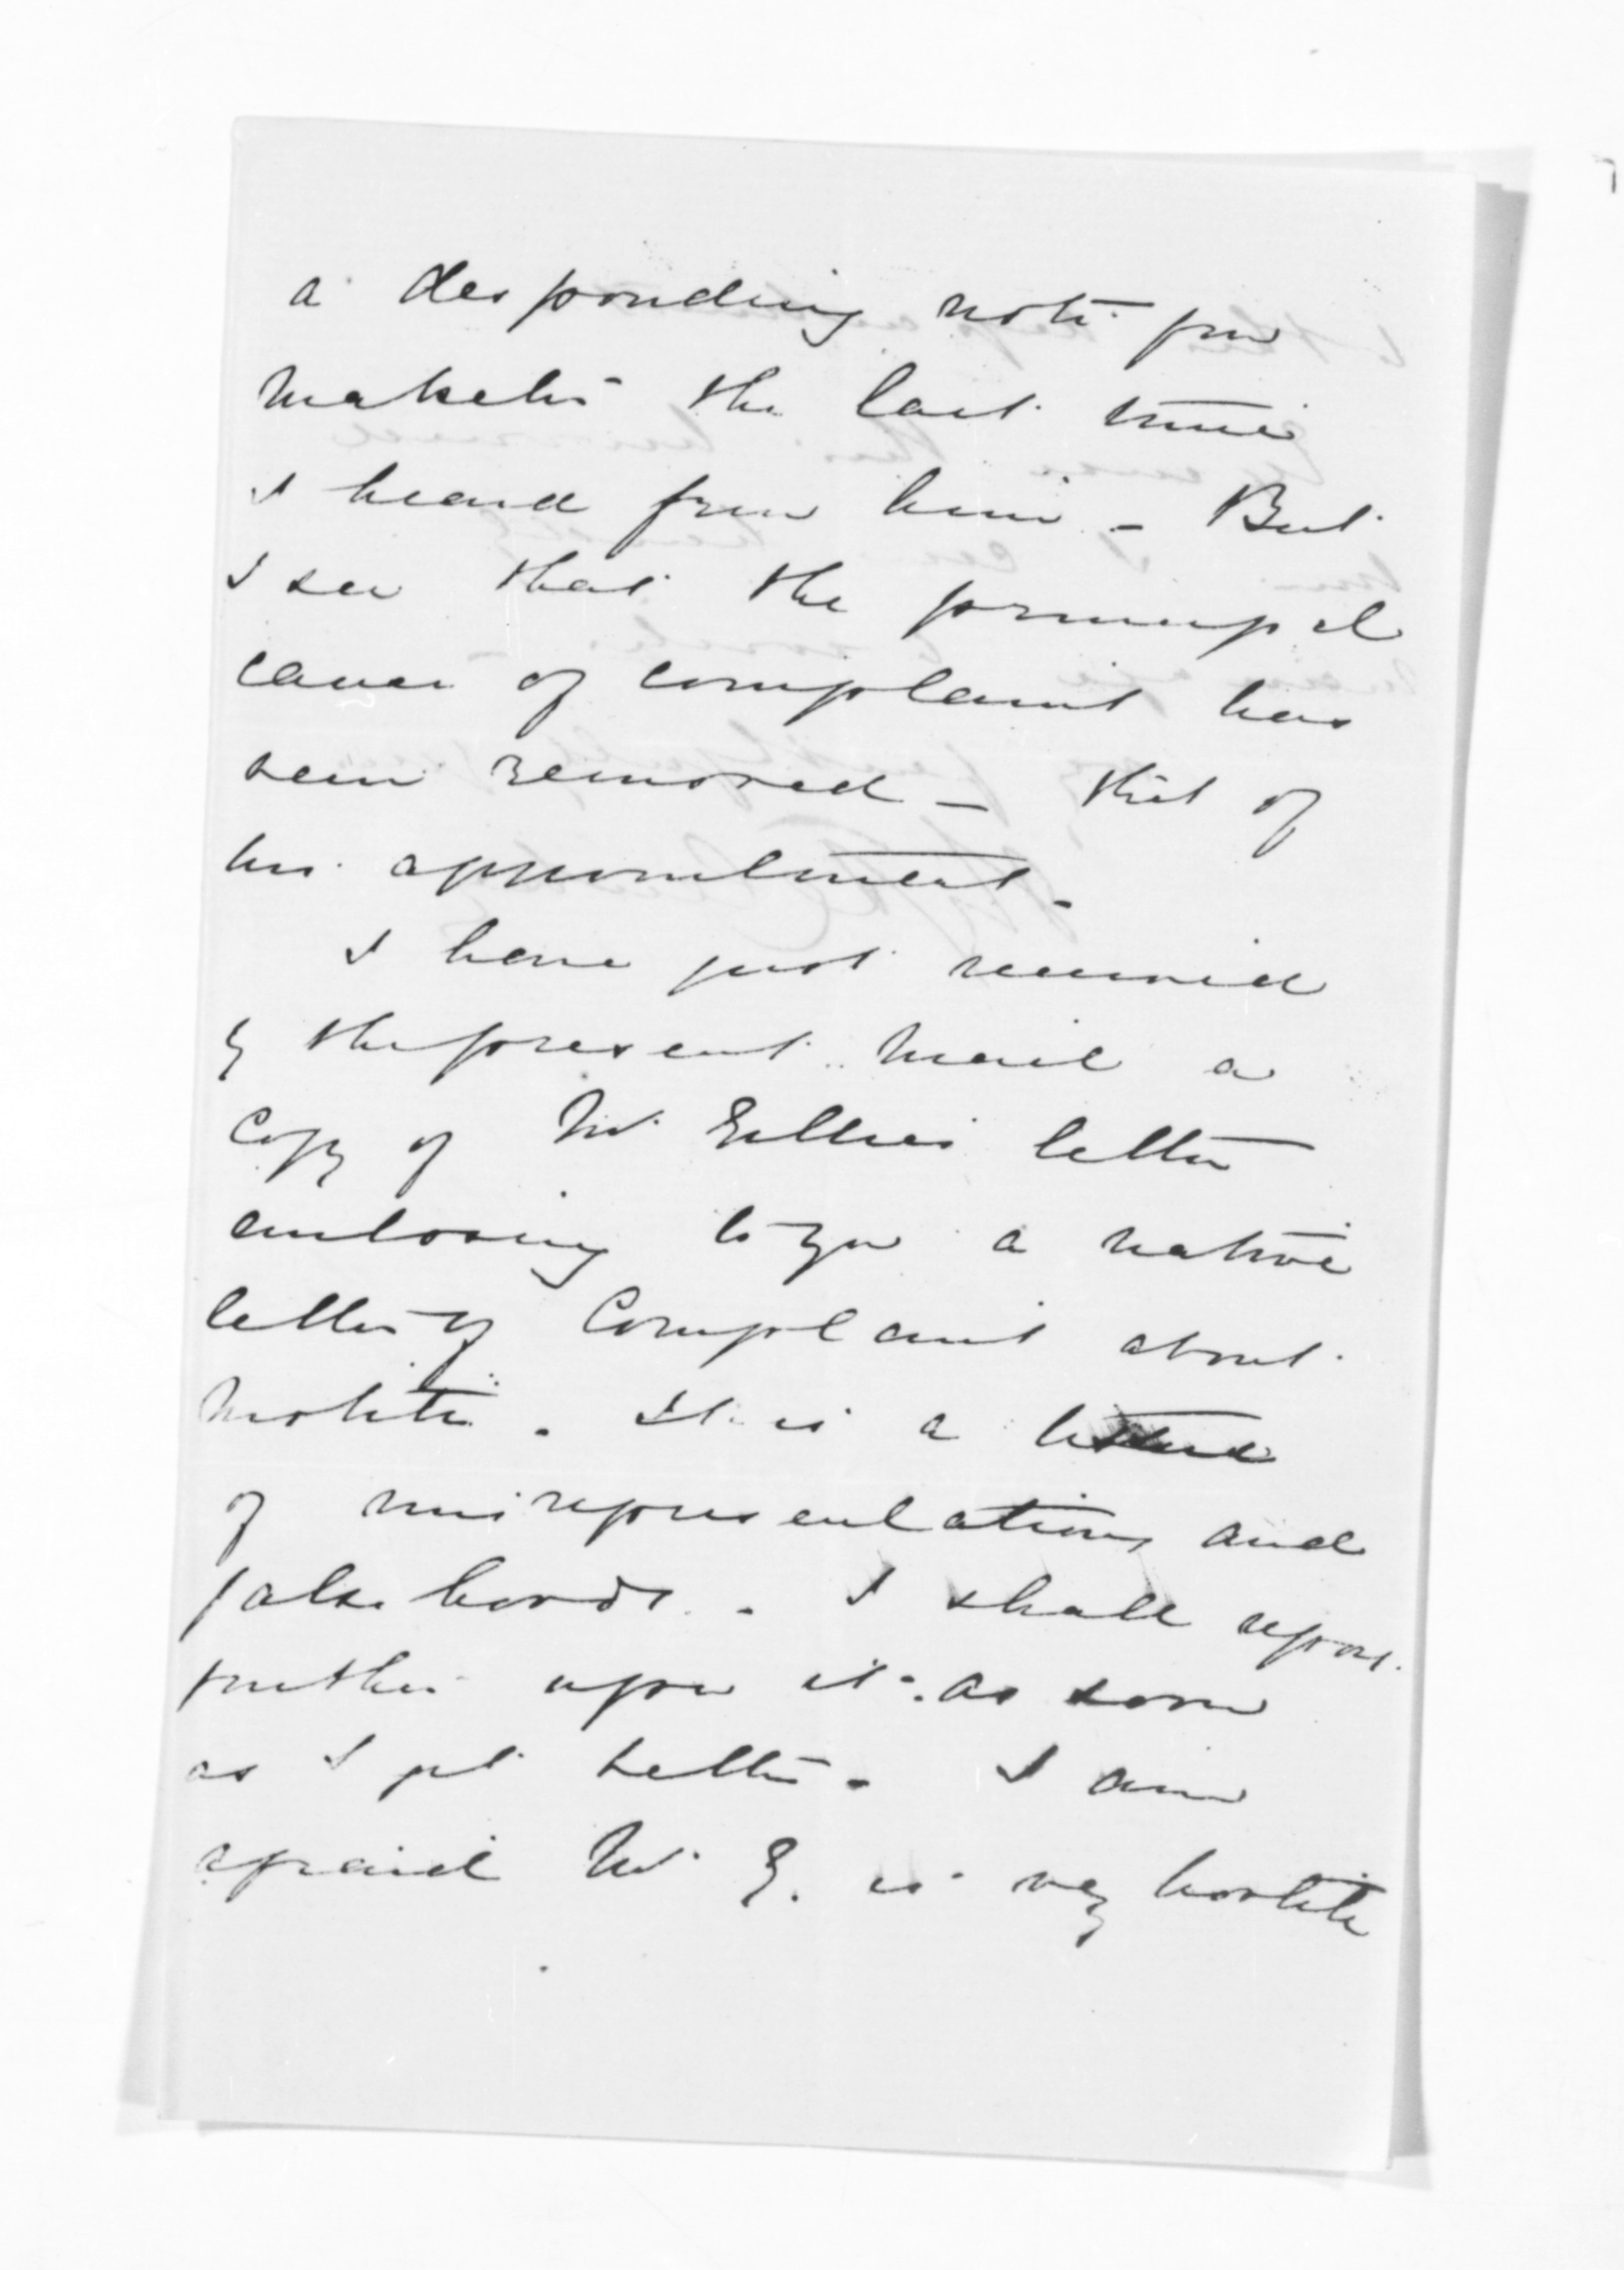 a desponding note from
the last time
I heard from him - But
I see that the principal
cause of complaint has
been removed - that of
his appointment -
I have just received
by the present mail a
copy of Mr. letter
enclosing to you a native
letter of Complaint about
. It is a tissue
of misrepresentations and
falsehoods. - I shall report
further upon it as soon
as I get better - I am
afraid Mr. E. is very hostile